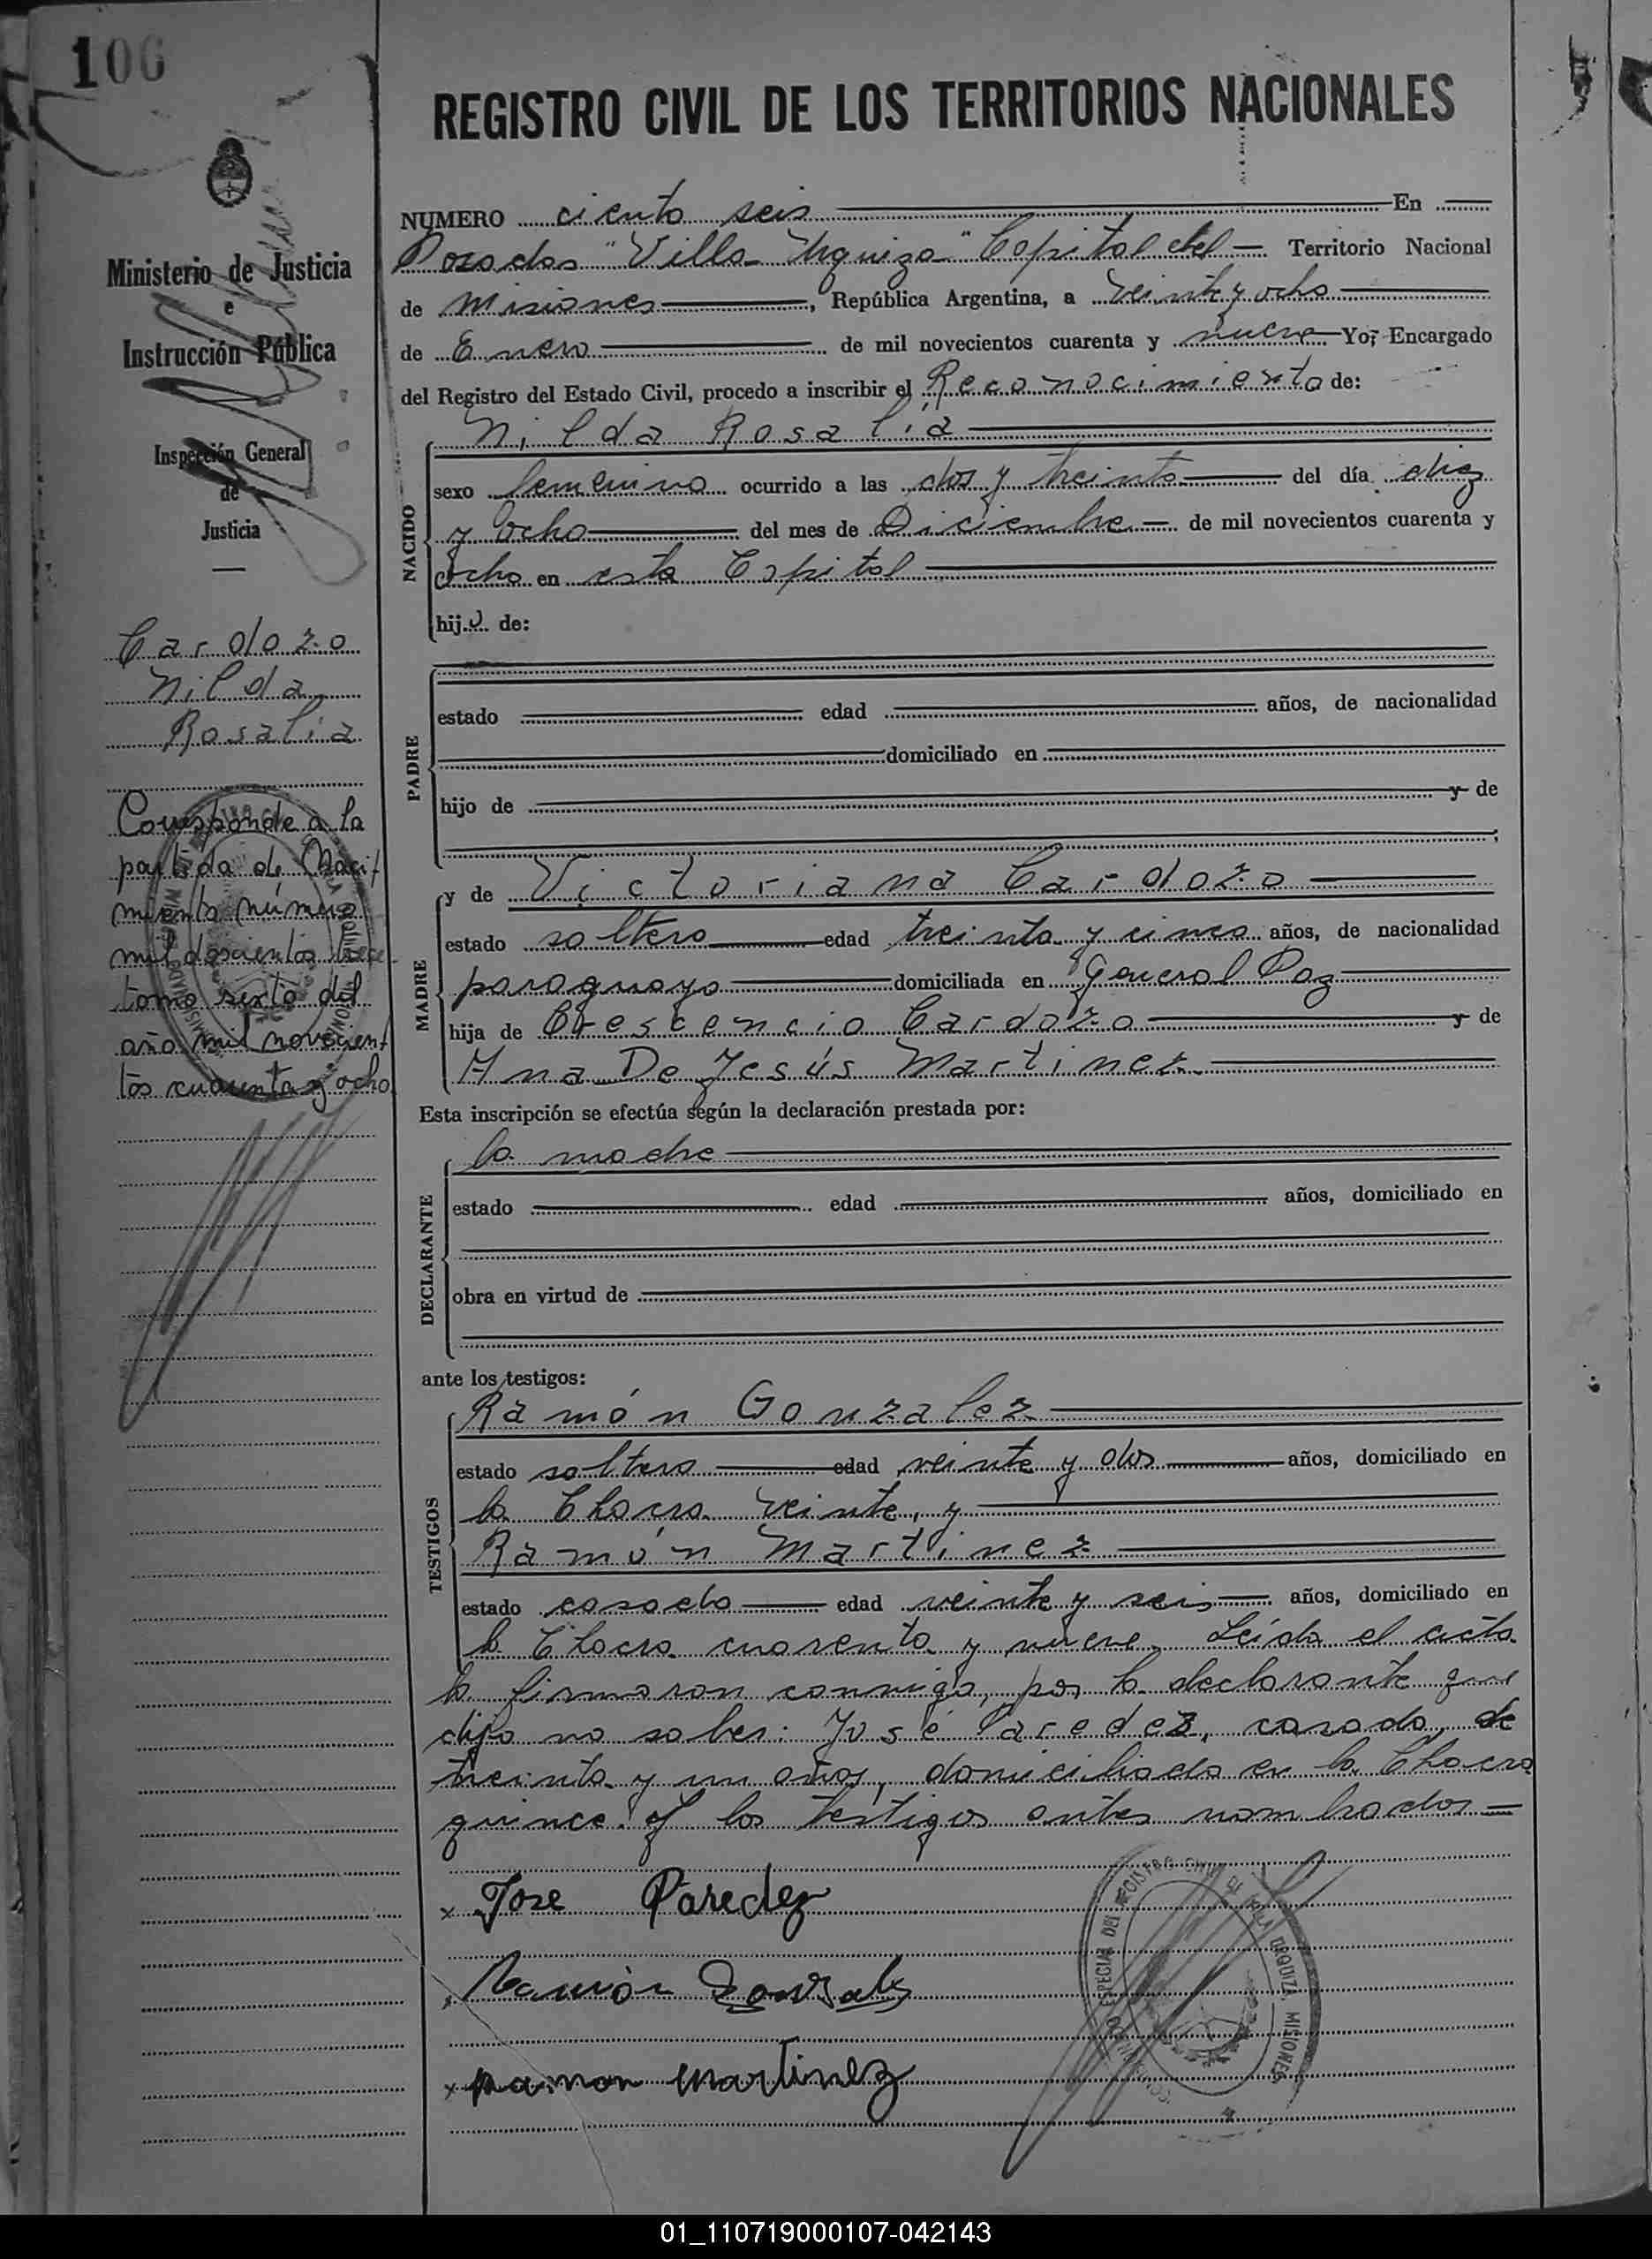 106
REGISTRO CIVIL DE LOS TERRITORIOS NACIONALES
Ministerio de Justicia
e
Instrucción Pública
Inspección General
de
Justicia
Cardozo
Nilda
Rosalía
Corresponde a la
partida de Naci-
miento número
mil doscientos trece
tomo sexto del
año mil novecien-
tos cuarenta y ocho
NUMERO ciento seis En
Posadas "Villa Urquiza" Capital del Territorio Nacional
de Misiones, República Argentina, a veinte y ocho
de Enero de mil novecientos cuarenta y nueve Yo, Encargado
del Registro del Estado Civil, procedo a inscribir el Reconocimiento de:
NACIDO
Nilda Rosalía
sexo femenino ocurrido a las dos y treinta del día diez
y ocho del mes de Diciembre de mil novecientos cuarenta y
ocho en esta Capital
hija de:
PADRE
estado edad años, de nacionalidad
domiciliado en
hijo de y de
MADRE
y de Victoriana Cardozo
estado soltera edad treinta y cinco años, de nacionalidad
paraguaya domiciliada en General Paz
hija de Crescencio Cardozo y de
Ana De Jesús Martinez
Esta inscripción se efectúa según la declaración prestada por:
DECLARANTE
la madre
estado edad años, domiciliado en
obra en virtud de
ante los testigos:
TESTIGOS
Ramón Gonzalez
estado soltero edad veinte y dos años, domiciliado en
la Chacra veinte, y
Ramón Martinez
estado casado edad veinte y seis años, domiciliado en
la Chacra cuarenta y nueve. Leída el acta
la firmaron conmigo, por la declarante que
dijo no saber: José Paredez, casado, de
treinta y un años, domiciliado en la Chacra
quince. Y los testigos antes nombrados
x Jose Paredez
x Ramón Gonzalez
x Ramon Martinez
01_110719000107-042143